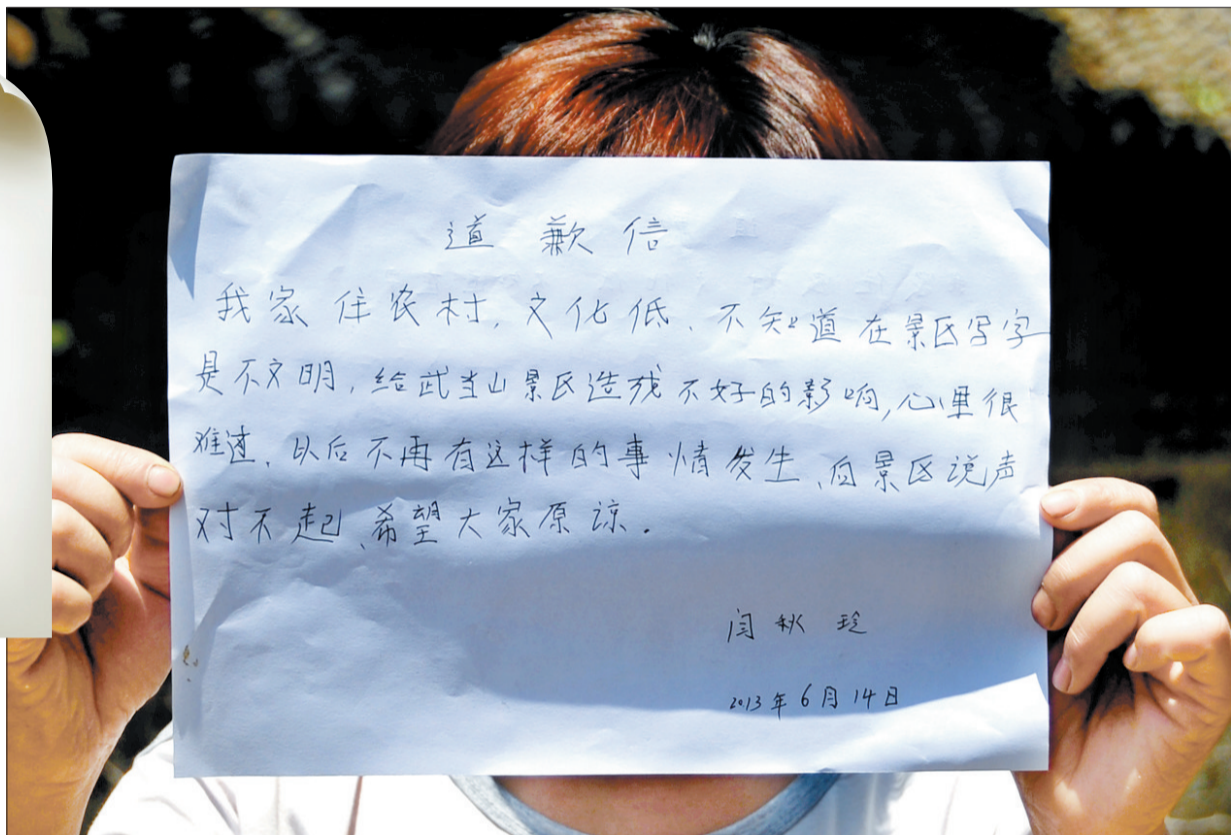 道歉信
我家住农村,文化低、不知道在景区写字
是不文明,给武当山景区造成不好的影响,心里很
难过、以后不再有这样的事情发生、向景区说声
对不起、希望大家原谅。
闫秋玲
2013年6月14日